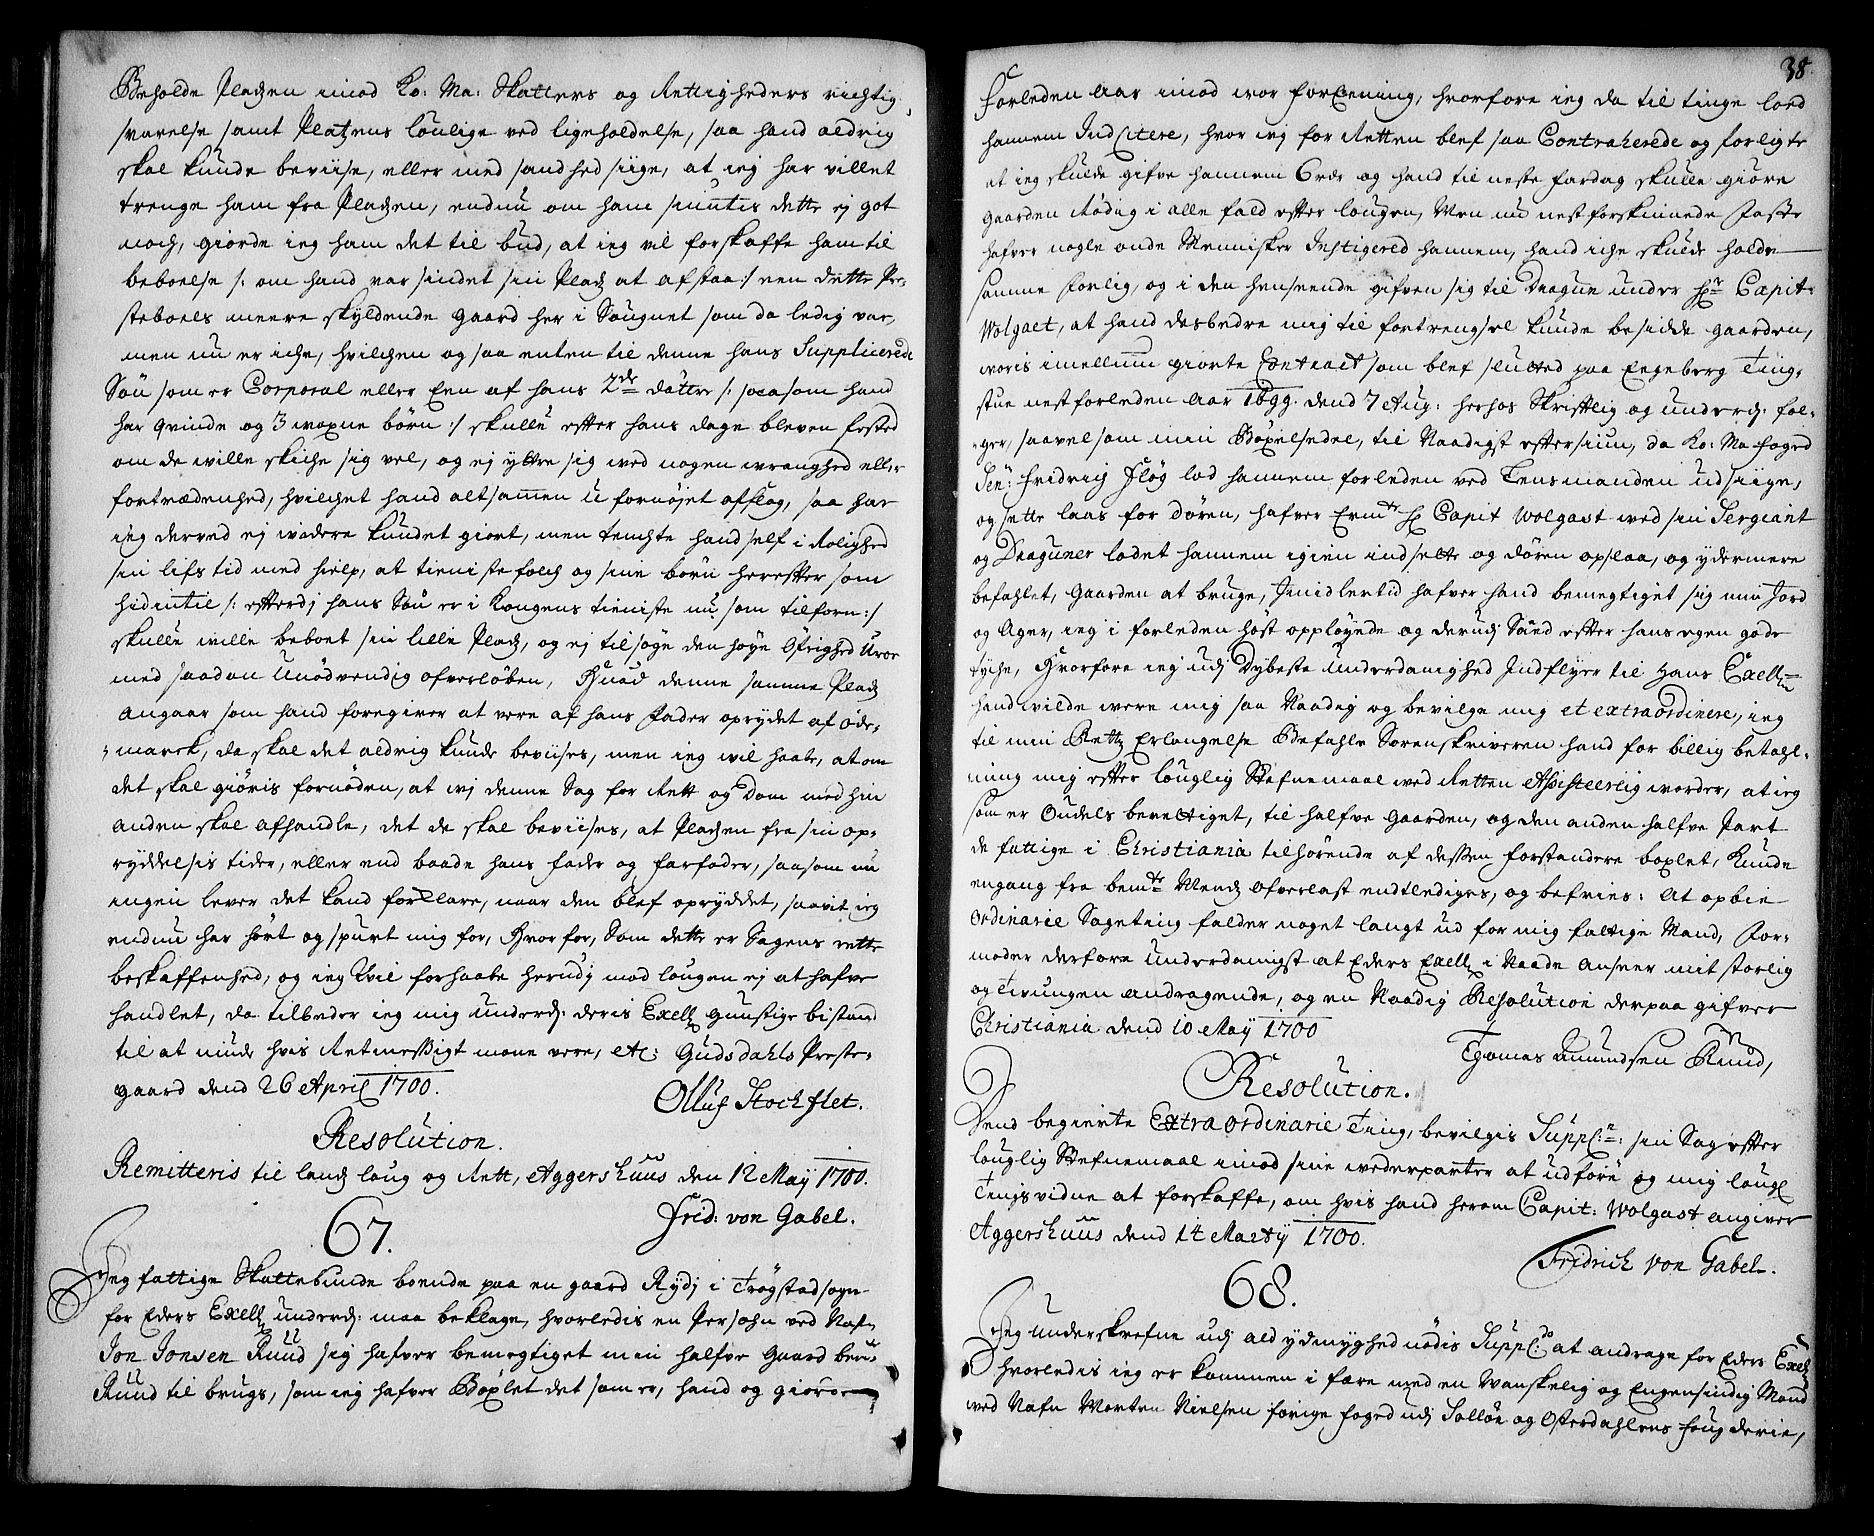 Beholde Pladsen imod Ko: Ma: Skatters og Rettigheders rigtig
svarelse samt Platzens loulige ved ligeholdelse, saa hand aldrig
skal kunde beviise, eller med sandhed siige, at ieg har villet
trenge ham fra Pladsen, endnu om ham siuntis dette ej got
noch, giorde ieg ham det til bud, at ieg vil forskaffe ham til
beboelse /: om hand var sindet sin Plads at afstaa :/ een dette Pre-
steboels meere skyldende gaard her i Sougnet som da ledig var,
men nu er iche, hvilchen og saa enten til denne hans Supplicerede
Søn som er Corporal eller Een af hans 2de døttre /: saasom hand
har qvinde og 3 woxne børn :/ skulle effter hans dage bleven fested
om de wille skiche sig vel, og ej yttre sig med nogen wranghed eller
fortrædenhed, hvilchet hand altsammen u fornøjet afslog, saa har
ieg derved ej widere kundet giort, men tenchte hand self i Rolighed
sin lifs tid med hielp, at tieniste folch og sine børn hereffter som
hidintil /: efterdj hans Søn er i Kongens tieniste nu som tilforn :/
skulle wille beboet sin lille Plads, og ej tilføye den høye Øfrighed Uroe
med saadan Unødvendig ofverløben, Hvad denne samme Plads
angaar som hand foregiver at vere af hans Fader oprydet af øde-
marck, da skal det aldrig kunde beviises, men ieg wil haabe, at om
det skal giøris fornøden, at wj denne Sag for Rett og Dom med hin
anden skal afhandle, det da skal beviises, at Pladsen fra sin op-
ryddelsis tider, eller end baade hans fader og farfader, saasom nu
ingen lever det kand forklare, naar den blef opryddet, saavit ieg
endnu har hørt og spurt mig for, Hvorfor, Som dette er Sagens rette
beskaffenhed, og ieg Vil forhaabe herudj mod lougen ej at hafve
handlet, da tilbeder ieg mig underd: deris Exell gunstige bistand
til at niude hvis Retmessigt mone vere, etc: Gudsdahls Preste-
gaard dend 26 April 1700.
Olluf Stochflet.
Resolution.
Remitteris til lands loug og Rett, Aggershuus den 12 May 1700.
Frid: von Gabel.
67.
Jeg fattige Skattebunde boende paa en gaard Rydj i Trøgstad sogn
for Eders Exell underd: maa beklage, hvorledis en Persohn ved Nafn
Jon Jonsen Ruud sig hafver bemegtiget min halfve Gaard ben:
Ruud til brugs, som ieg hafver Bøxlet det som er, hand og giorde
38.
Forleden Aar imod vor forEening, hvorfore ieg da til tinge lod
hannem IndCitere, hvor wj for Retten blef saa Contraherede og forligte
at ieg skulde gifve hannem 6 rdr og hand til neste fardag skulle giøre
gaarden Rødig i alle fald effter lougen, Men nu nest forskinnede Faste
hafver nogle onde Mennisker Instigered hannem, hand iche skulde holde
samme forlig, og i den henseende gifven sig til Dragun under Hr Capit:
Wolgast, at hand desbedre mig til fortrengsel kunde besidde gaarden,
woris imellum giorte Contract som blef slutted paa Engeberg Ting-
stue nest forleden Aar 1699. dend 7 Aug: herhos Skrifftlig og underd: føl-
ger, saavelsom min Bøxelsedel, til Naadigst eftersiun, da Ko: Ma foged
Sen: Fridrig Fløg lod hannem forleden ved Lensmanden udsiige,
og sette laas for døren, hafver Ermte Hr Capit Wolgast med sin Sergiant
og Draguner ladet hannem igien indsette og døren opslaa, og ydermere
befahlet, gaarden at bruge, Imidlertid hafver hand bemegtiget sig min Jord
og Ager, ieg i forleden høst opployede og derudj Saaed effter hans egen gode
tyche, Hvorfore ieg udj Dybeste Underdanighed Indflyer til Hans Exell
hand wilde were mig saa Naadig og bevilge mig et extraordinere, ieg
til min Retts Erlangelse Befahle Sorenskriveren hand for billig betahl-
ning mig effter louglig Stefnemaal ved Retten Assisteerlig worder, at ieg
som er Oudels berettiget, til halfve gaarden, og den anden halfve Part
de fattige i Christiania tilhørende af dessen forstandere boxlet, kunde
engang fra bemte Mends ofverlast endtlediges, og befries: At opbie
Ordinarie Sageting falder noget langt ud for mig fattige Mand, For-
moder derfore underdanigst at Eders Exell i Naade anseer mit storlig
og tvungen andragende, og en Naadig Resolution derpaa gifver
Christiania dend 10 May 1700
Thomas Amundsen Ruud,
Resolution.
Dend begierte Extraordinarie Ting, bevilgis Suppl:n: sin Sag effter
louglig Stefnemaal imod sine wederparter at udføre og mig lougl
Tingsvidne at forskaffe, om hvis hand herom Capit: Wolgast angiver
Aggershuus dend 14 Marty 1700.
Fridrich von Gabel.
68.
Jeg underskrefne udj ald ydmyghed nødis Suppl:do at andrage for Eders Exell
hvorledis ieg er kommen i fære med en Wanskelig og Engensindig Mand
ved Nafn Morten Nielsen forige foged udj Solløe og Østerdahlens fougderie,